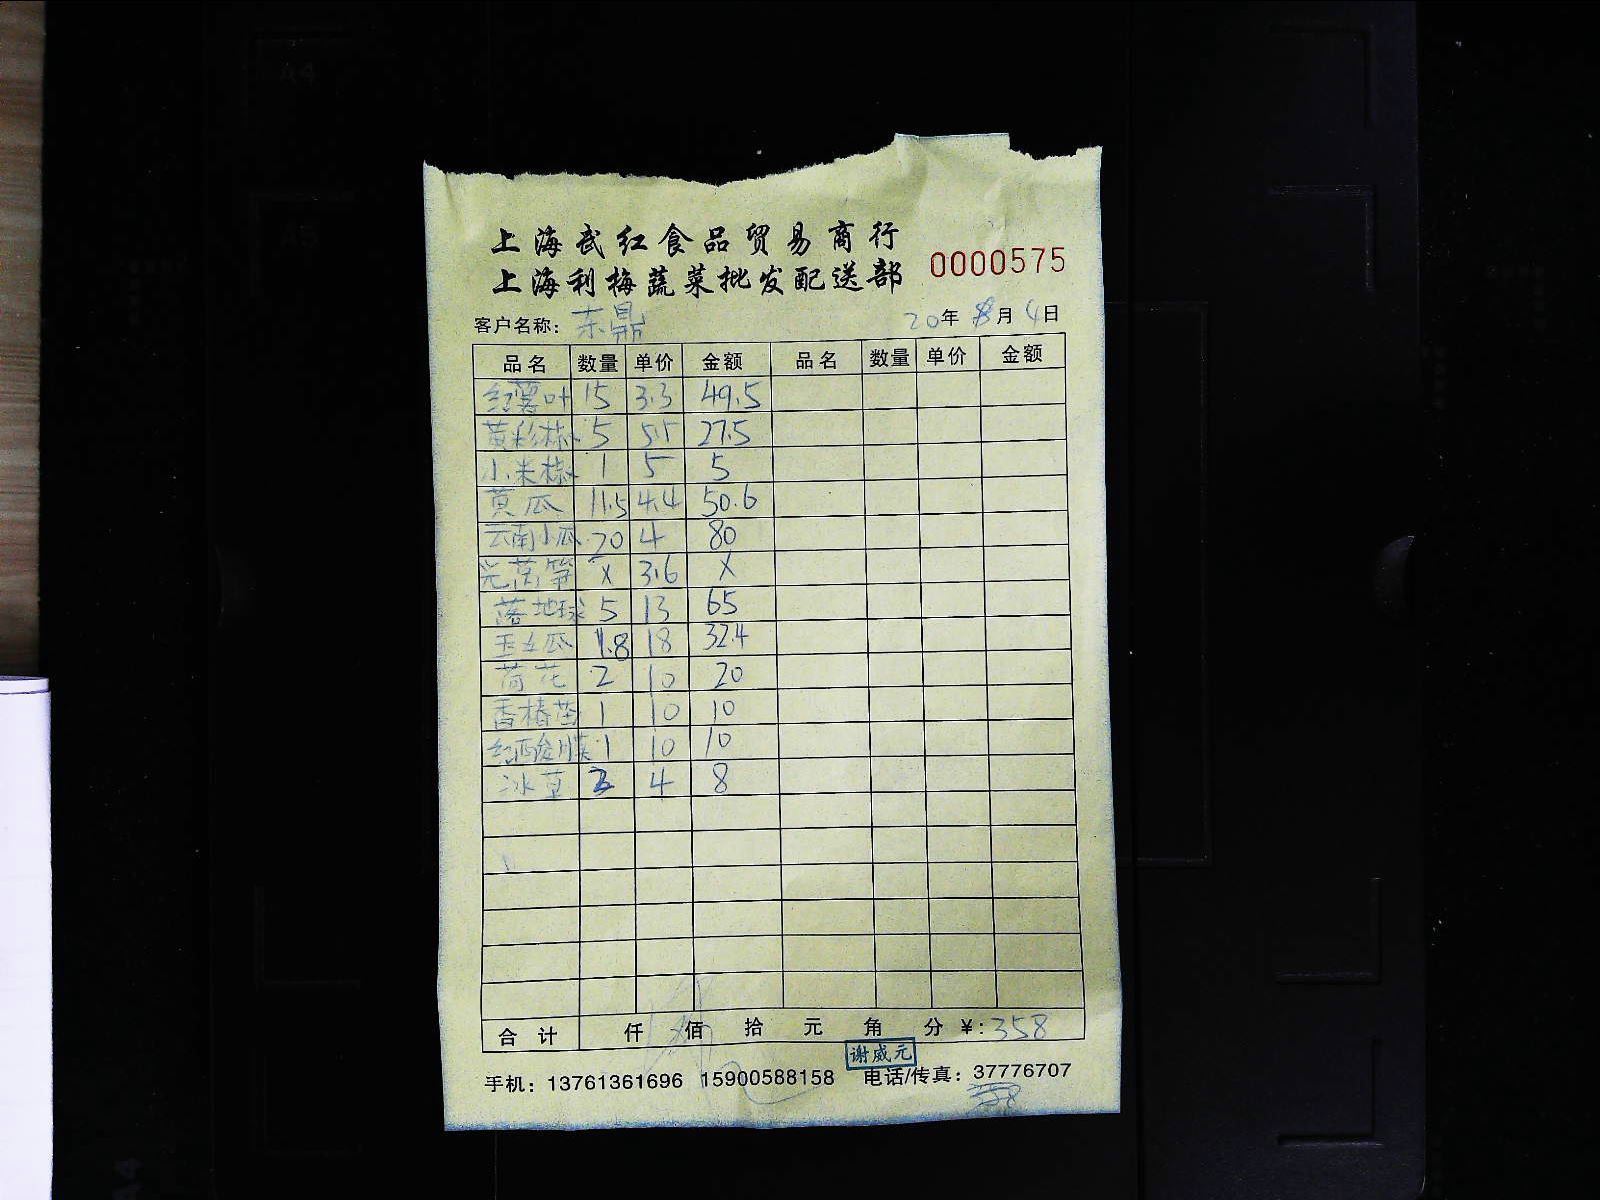 上海武红食品贸易商行
上海利梅蔬菜批发配送部 0000575
客户名称: 东鼎 20年 8月 4日
品名 数量 单价 金额 品名 数量 单价 金额
红薯叶 15 3.3 49.5
黄彩椒 5 5.5 27.5
小米椒 1 5 5
黄瓜 11.5 4.4 50.6
云南小瓜 20 4 80
光莴笋 X 3.6 X
落地球 5 13 65
玉女瓜 1.8 18 32.4
荷花 2 10 20
香椿苗 1 10 10
红酸膜 1 10 10
冰草 2 4 8
合计 仟 佰 拾 元 角 分 ¥: 358
谢威元
手机: 13761361696 15900588158 电话/传真: 37776707
358